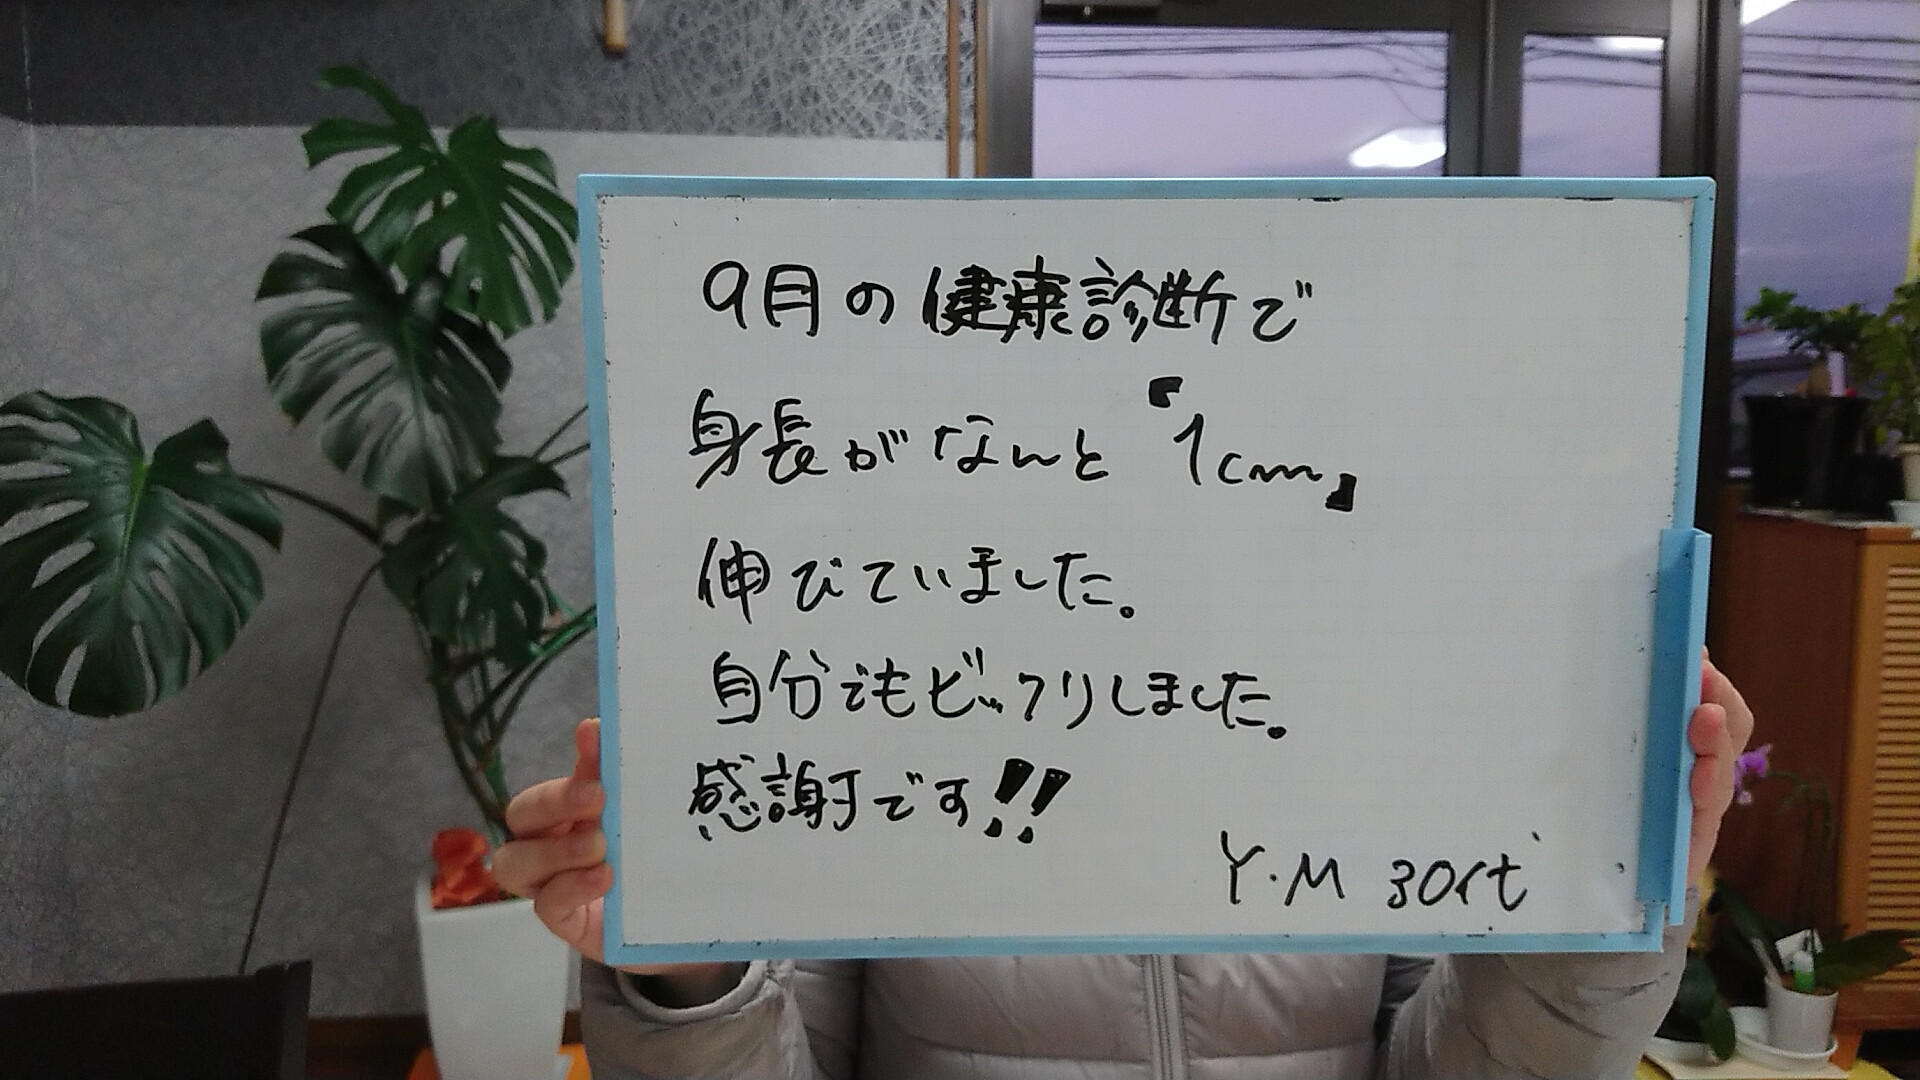 9月の健康診断で
身長がなんと『1cm』
伸びていました。
自分でもビックリしました。
感謝です!!
Y.M 30代